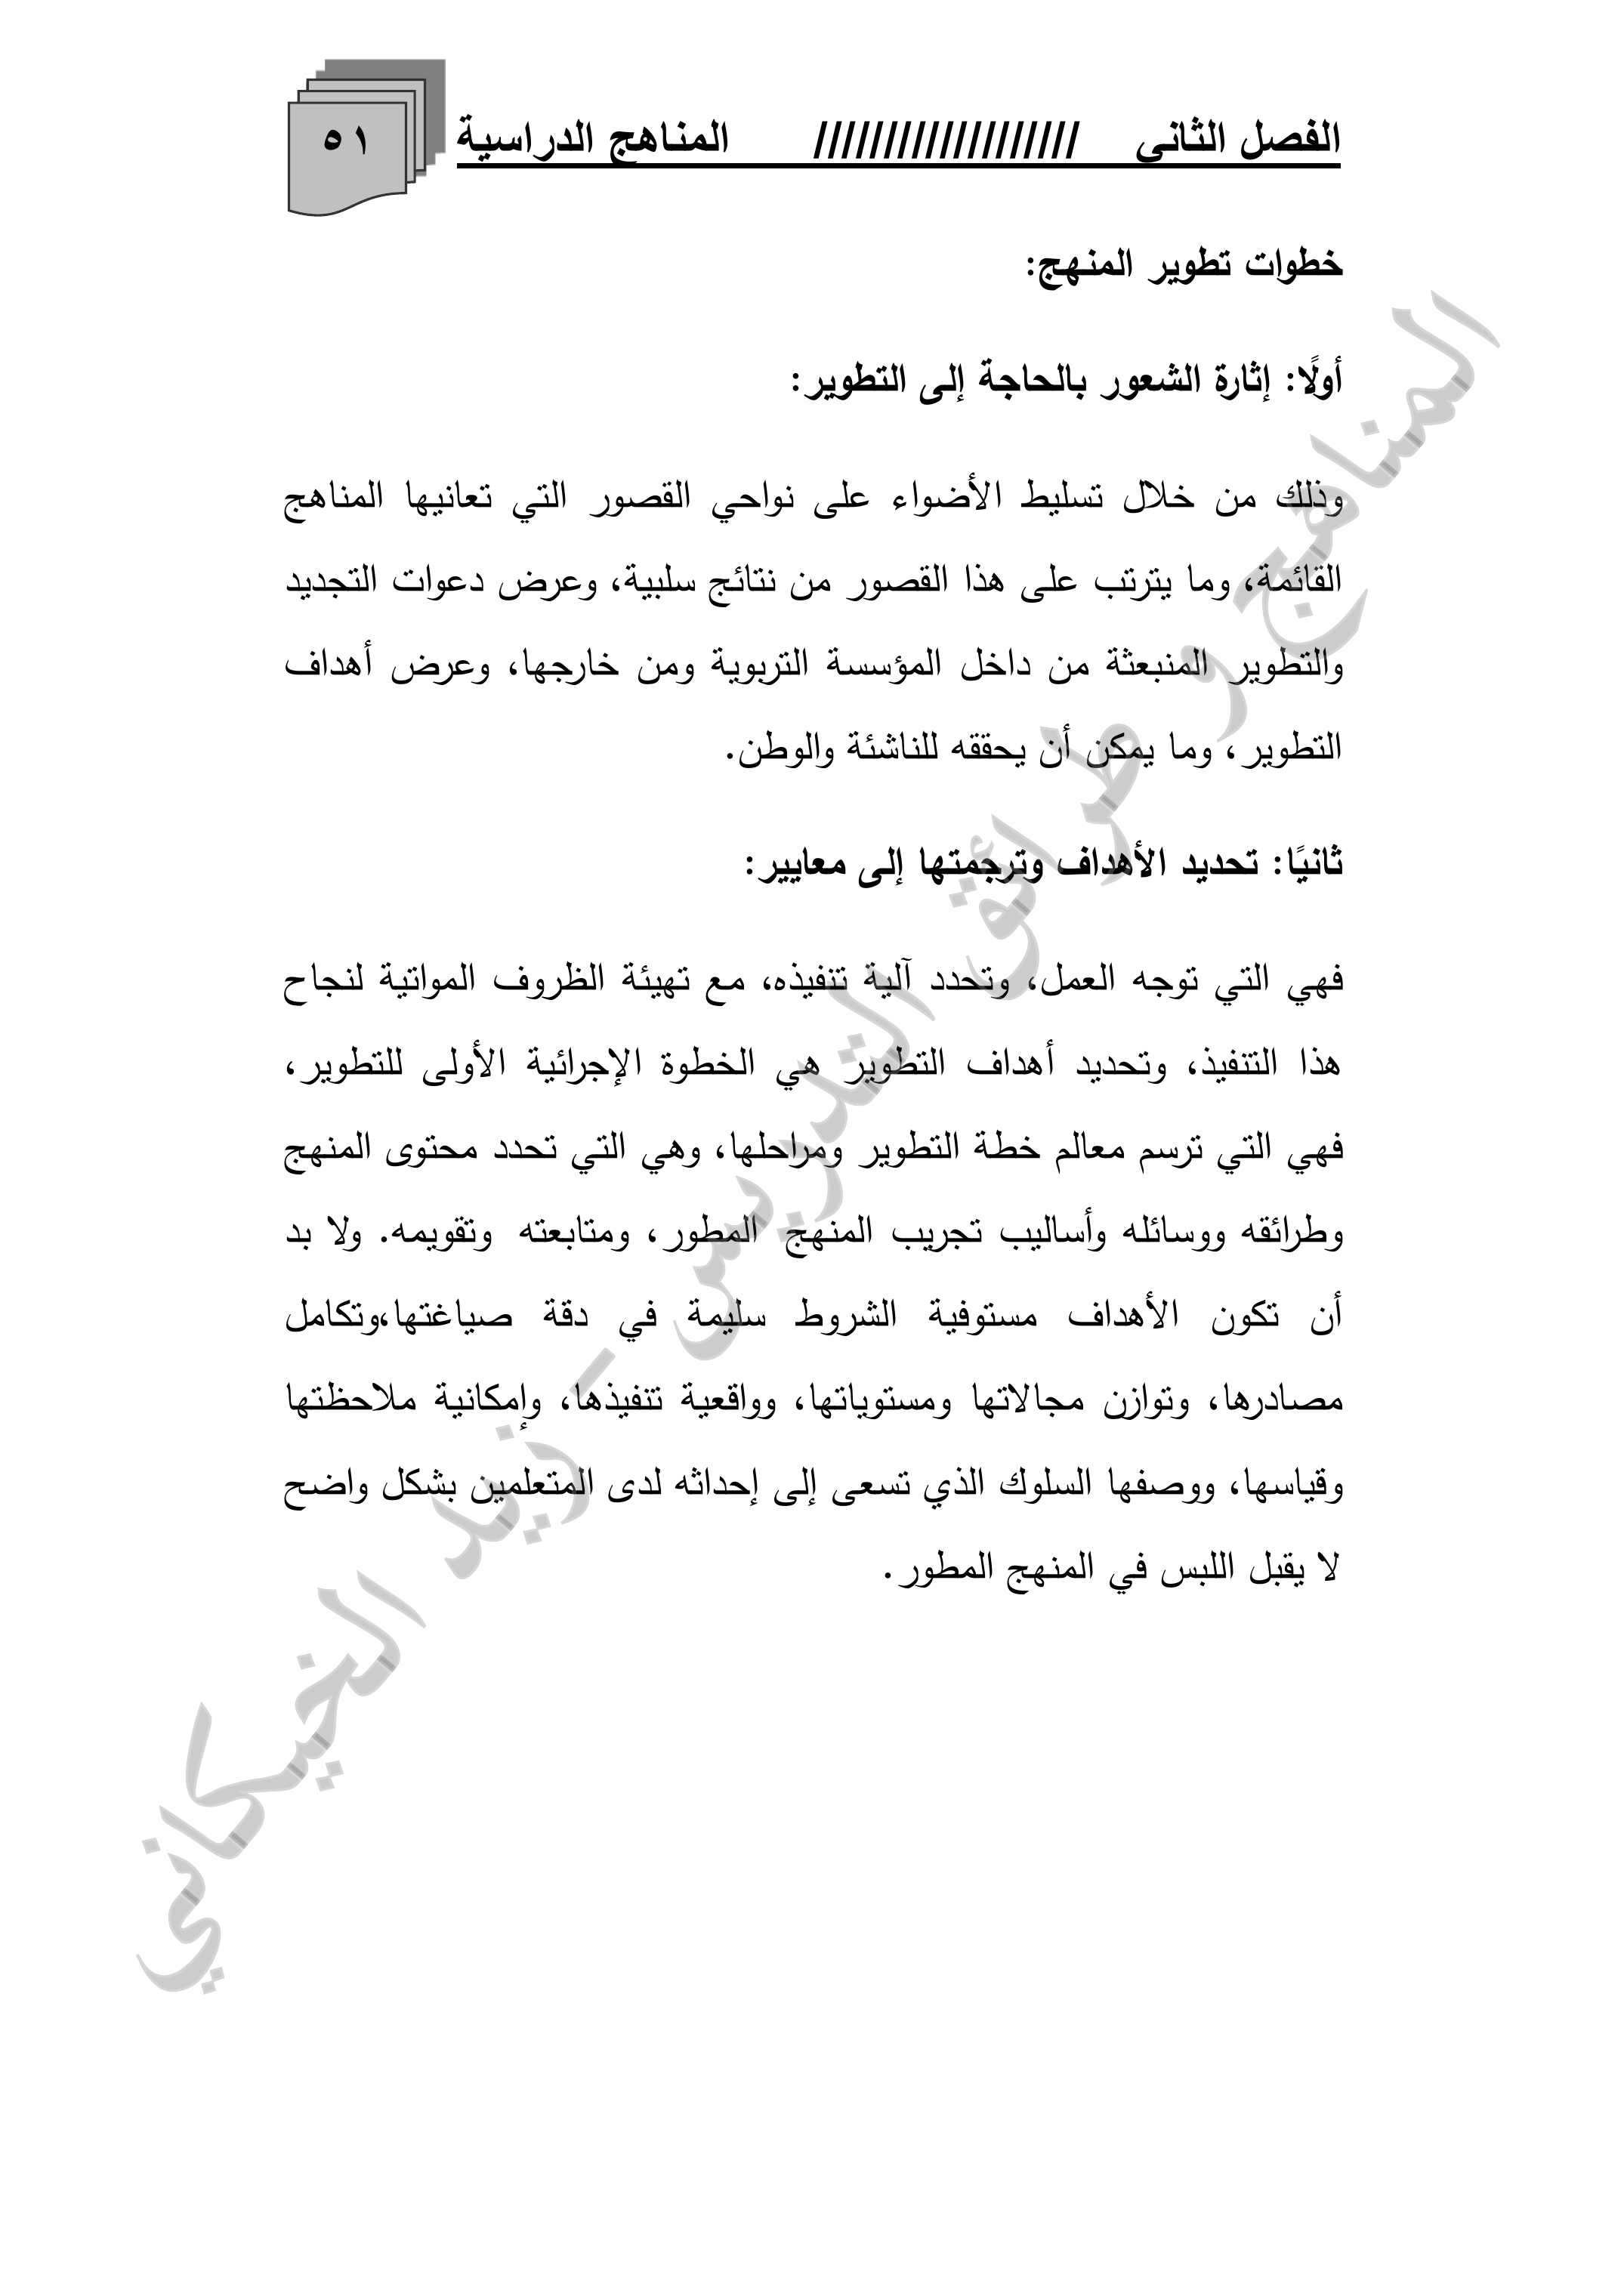 الفصل الثاني /////////////////// المناهج الدراسية ٥١
خطوات تطوير المنهج:
أولًا: إثارة الشعور بالحاجة إلى التطوير:
وذلك من خلال تسليط الأضواء على نواحي القصور التي تعانيها المناهج
القائمة، وما يترتب على هذا القصور من نتائج سلبية، وعرض دعوات التجديد
والتطوير المنبعثة من داخل المؤسسة التربوية ومن خارجها، وعرض أهداف
التطوير، وما يمكن أن يحققه للناشئة والوطن.
ثانيًا: تحديد الأهداف وترجمتها إلى معايير:
فهي التي توجه العمل، وتحدد آلية تنفيذه، مع تهيئة الظروف المواتية لنجاح
هذا التنفيذ، وتحديد أهداف التطوير هي الخطوة الإجرائية الأولى للتطوير،
فهي التي ترسم معالم خطة التطوير ومراحلها، وهي التي تحدد محتوى المنهج
وطرائقه ووسائله وأساليب تجريب المنهج المطور، ومتابعته وتقويمه. ولا بد
أن تكون الأهداف مستوفية الشروط سليمة في دقة صياغتها،وتكامل
مصادرها، وتوازن مجالاتها ومستوياتها، وواقعية تنفيذها، وإمكانية ملاحظتها
وقياسها، ووصفها السلوك الذي تسعى إلى إحداثه لدى المتعلمين بشكل واضح
لا يقبل اللبس في المنهج المطور.
المناهج و طرائق التدريس – زيد الخيكاني